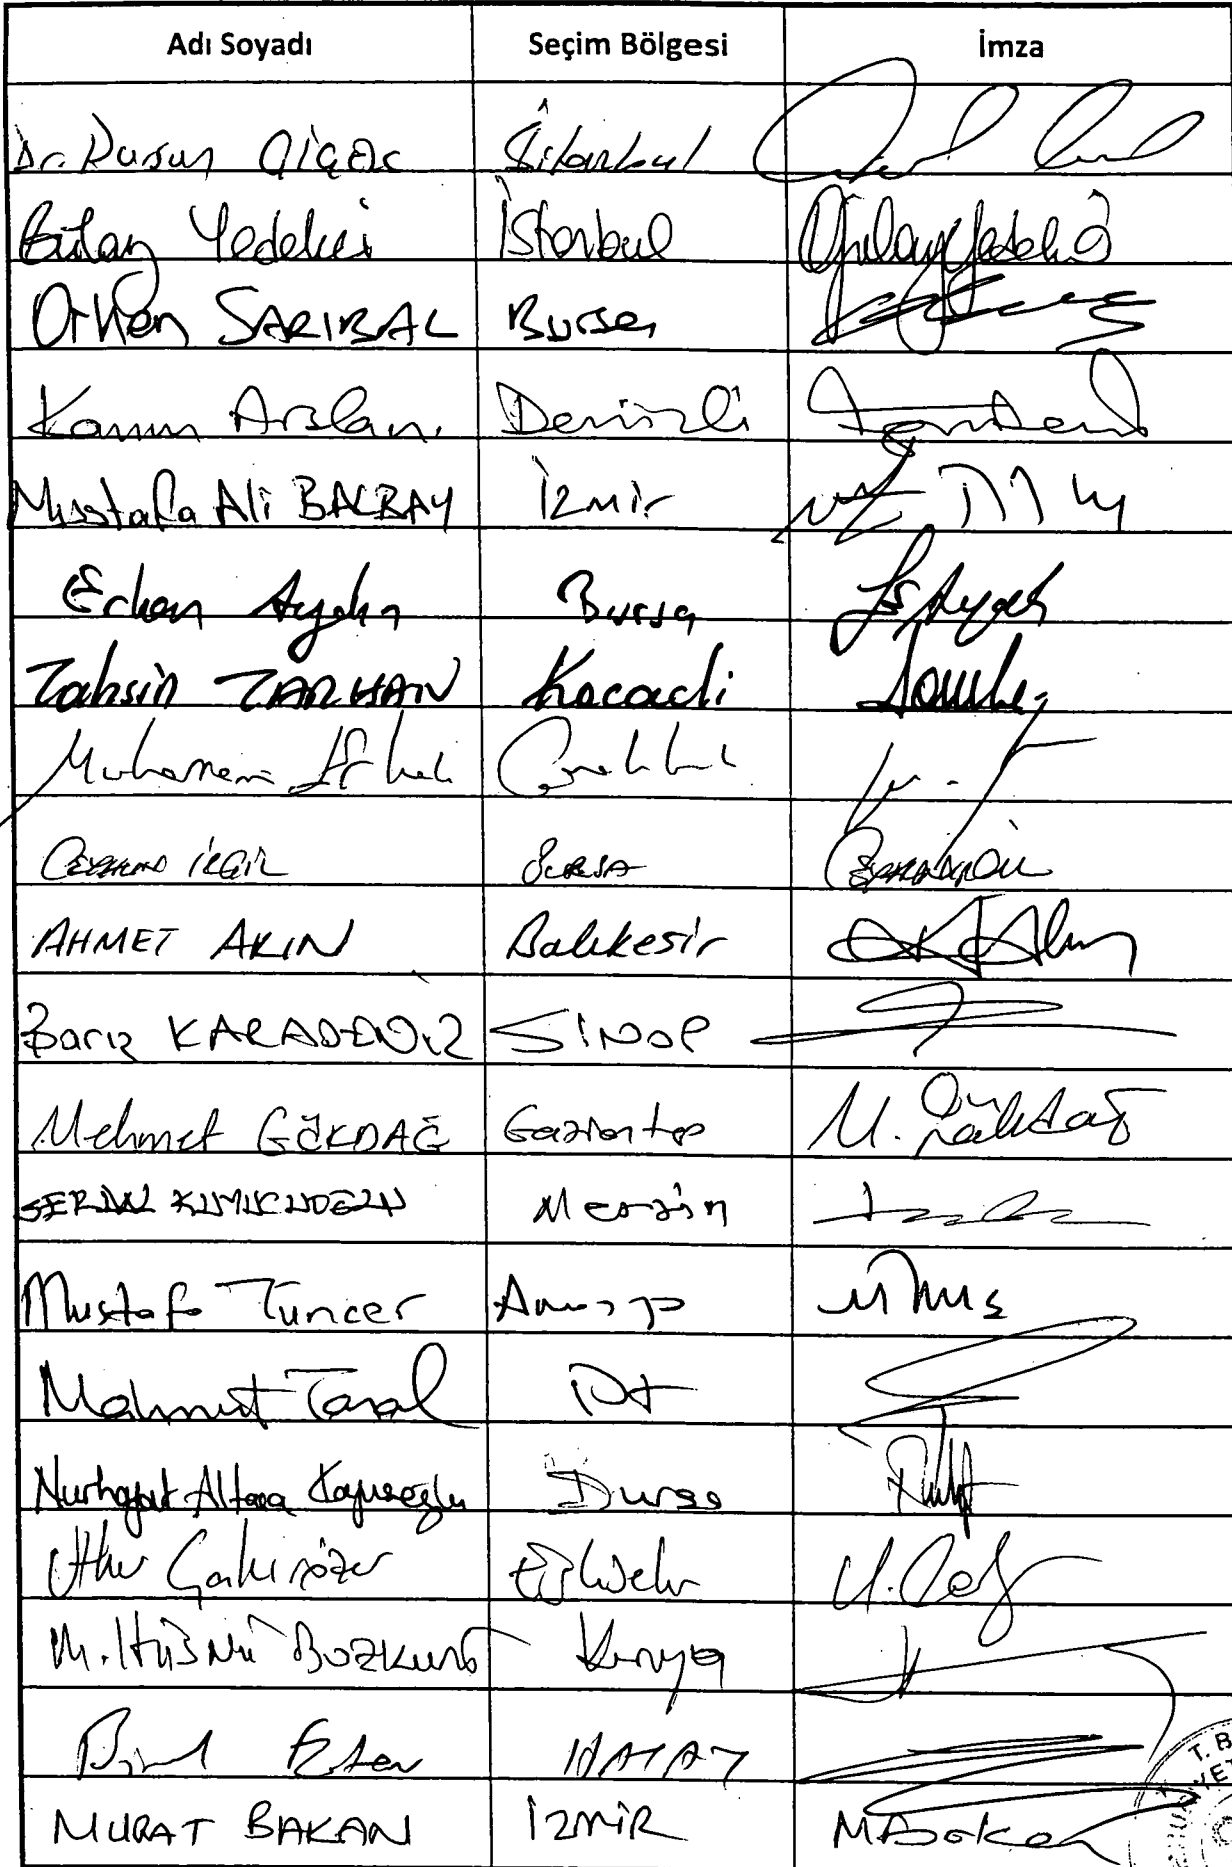 Adı Soyadı Seçim Bölgesi İmza
Dr. Dursun ÇİÇEK İstanbul
Gülay Yedekci İstanbul Gülay Yedekci
Orhan SARIBAL Bursa
Kazım Arslan Denizli
Mustafa Ali BALBAY İzmir
Erkan Aydın Bursa
Tahsin TARHAN Kocaeli
Muharrem Erkek Çanakkale
Ceyhun İRGİL BURSA
AHMET AKIN Balıkesir
Barış KARADENİZ SİNOP
Mehmet GÖKDAĞ Gaziantep M. Gökdağ
SERDAL KUYUCUOĞLU Mersin
Mustafa Tuncer Amasya
Mahmut Tanal İst
Nurhayat Altaca Kayışoğlu Bursa
Utku Çakırözer Eskişehir
M. Hüsnü BOZKURT Konya
Birol Ertem HATAY
MURAT BAKAN İZMİR MBakan
T. B